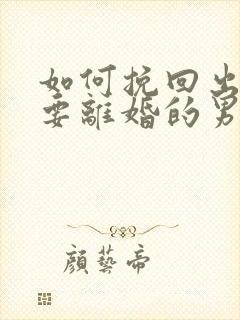 如何挽回出
要離婚的男
顏藝帝